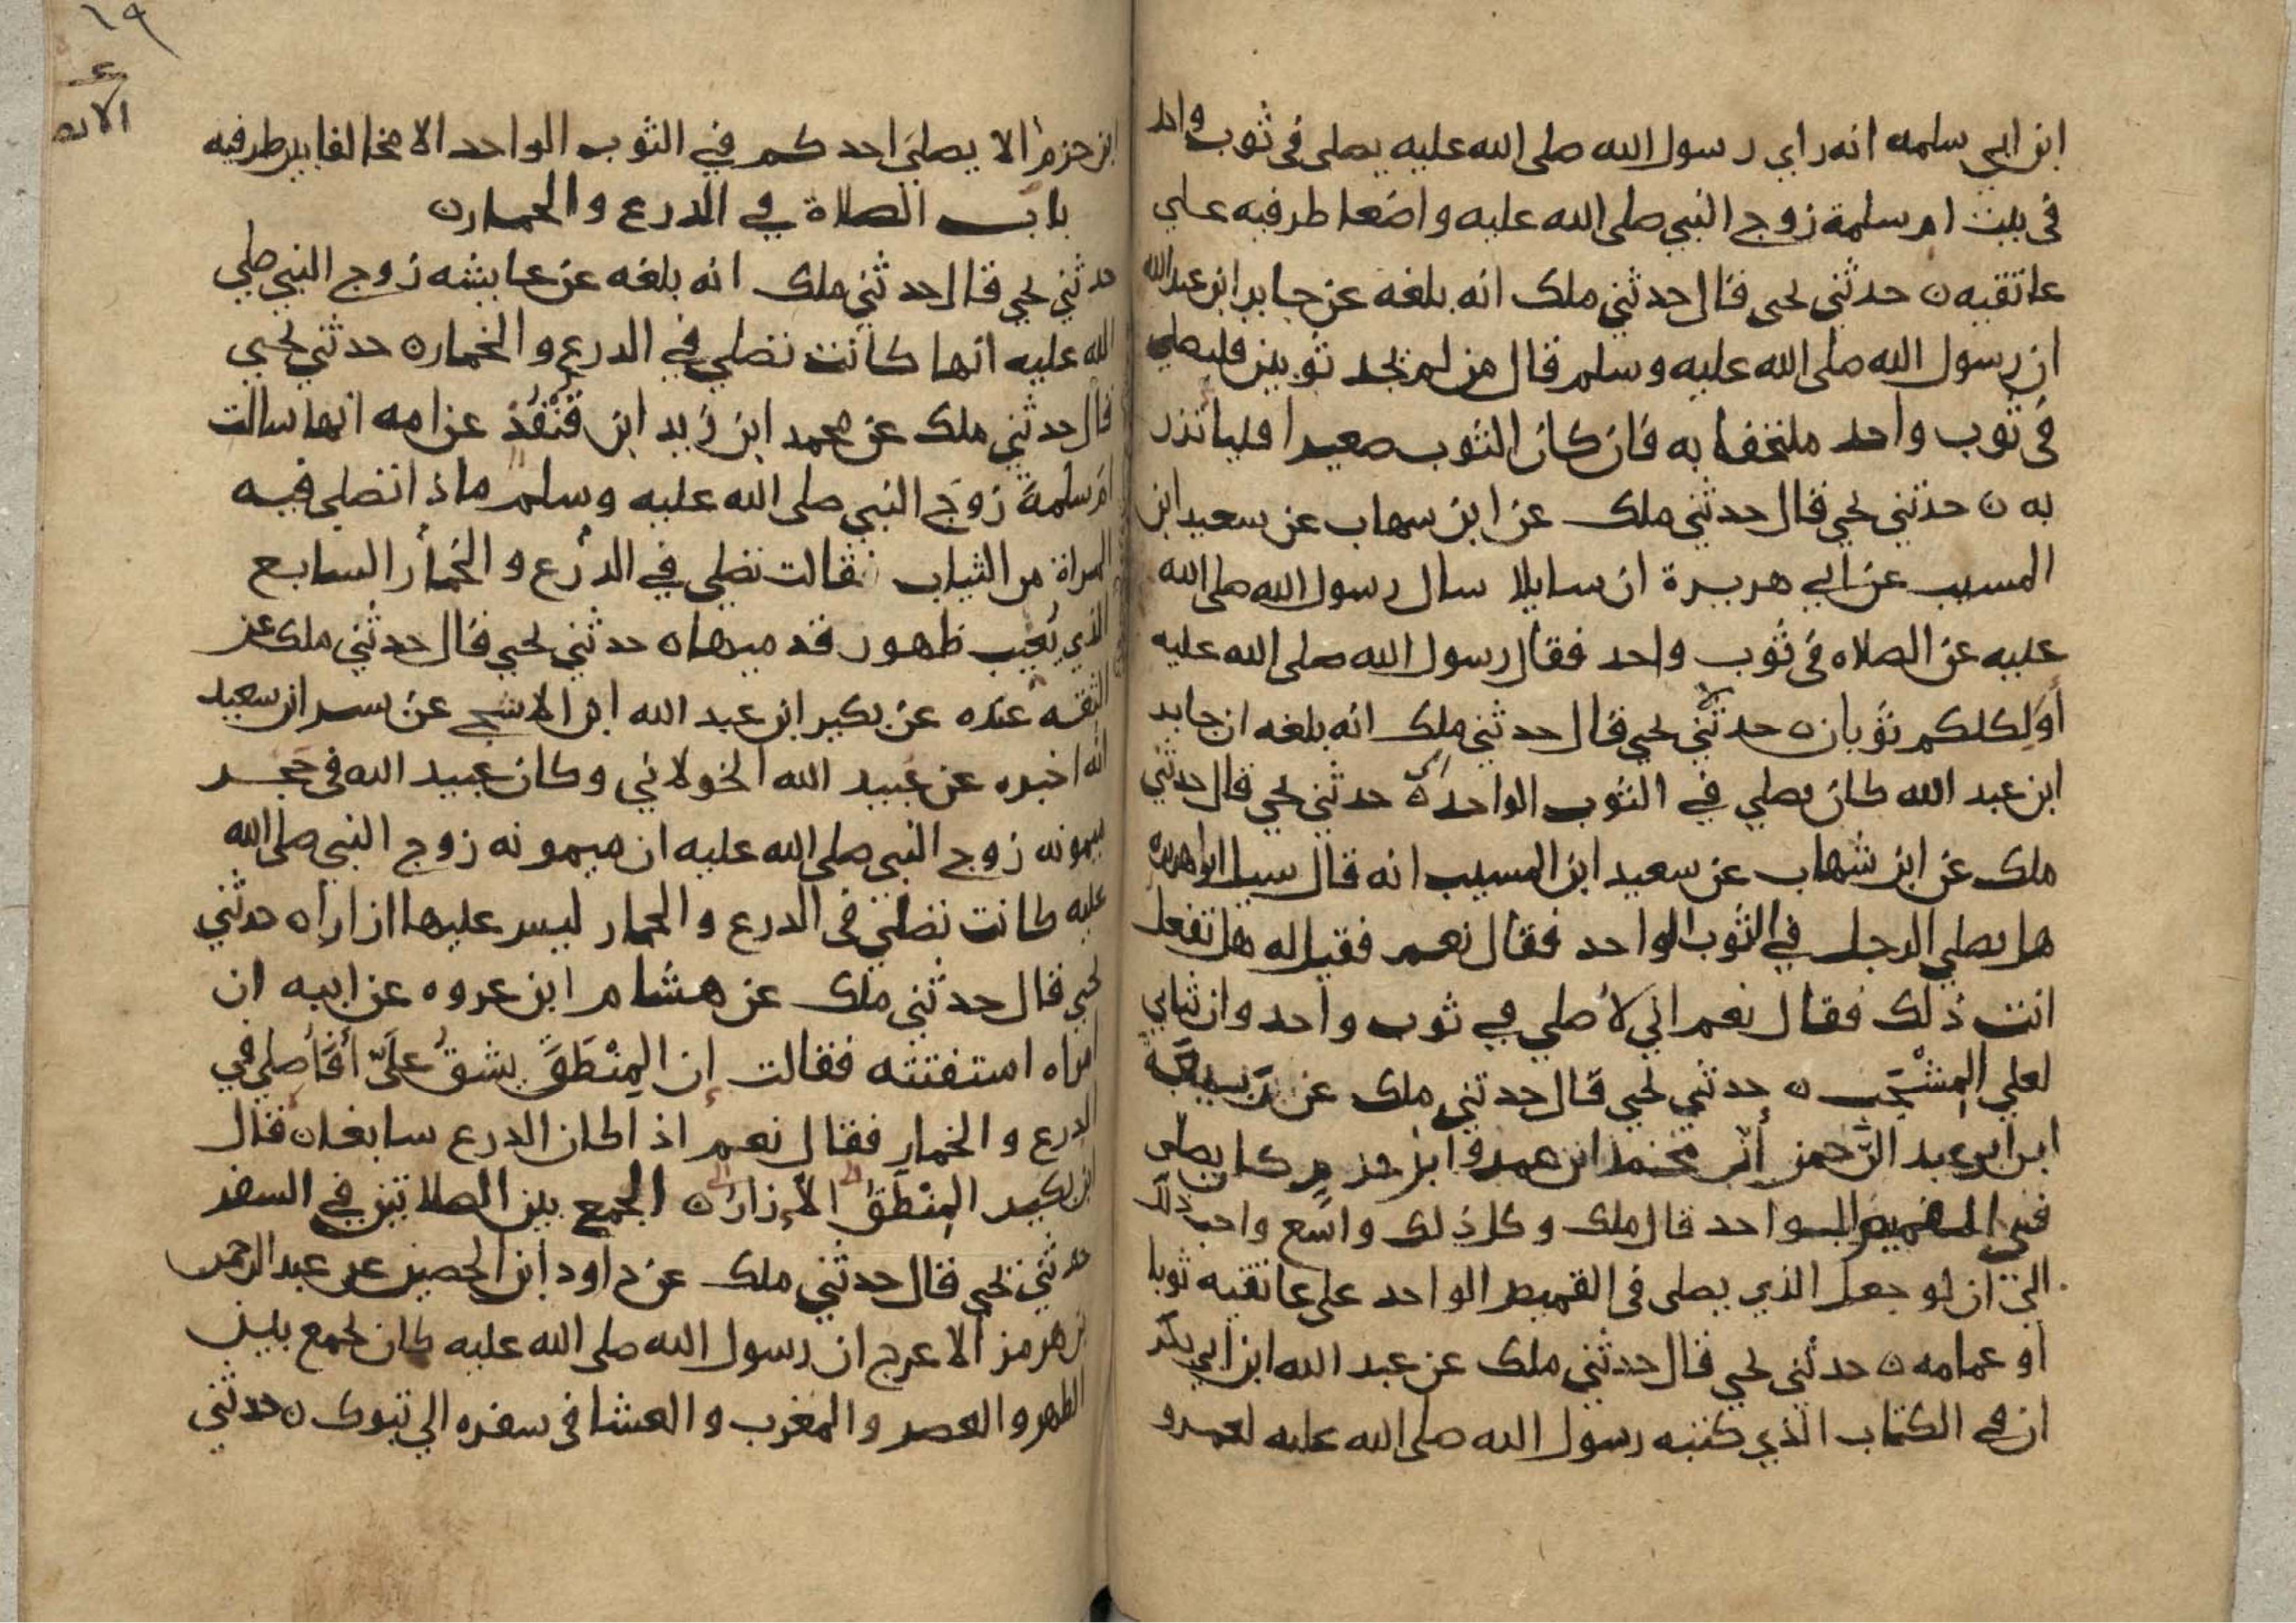 ابن ابي سلمه انه راي رسول الله صلى الله عليه يصلى فى ثوب واحد
فى بيت ام سلمة زوج النبي صلى الله عليه واضعا طرفيه علي
عاتقيه ن حدثنى يحيى قال حدثني ملك انه بلغه عن جابر ابن عبد الله
ان رسول الله صلى الله عليه وسلم قال من لم يجد ثوبين فليصلي
فى ثوب واحد ملتحفا به فان كان الثوب صغيرا فلياتزر
به ن حدثنى يحيى قال حدثني ملك عن ابن سهاب عن سعيد ابن
المسيب عن ابي هريرة ان سايلا سال رسول الله صلى الله
عليه عن الصلاه فى ثوب واحد فقال رسول الله صلى الله عليه
أَوَلِكلكم ثوبان ن حدثني يحيى قال حدثني ملك انه بلغه ان جابر
ابن عبد الله كان يصلي في الثوب الواحد ن حدثني يحيى قال حدثني
ملك عن ابن شهاب عن سعيد ابن المسيب انه قال سيل ابو هريره
هل يصلي الرجل في الثوب الواحد فقال نعم فقيل له هل تفعل
انت ذلك فقال نعم اني لأصلي في ثوب واحد وان ثيابي
لعلي المِشْجَب ن حدثني يحيى قال حدثني ملك عن رَبيعَة
ابن ابي عبد الرحمن أن محمد ابن عمرو ابن حزم كان يصلي
في القميص الواحد قال ملك وكل ذلك واسع واحب ذلك
الي ان لو جعل الذي يصلى فى القميص الواحد على عاتقيه ثوبا
او عمامه ن حدثني يحيى قال حدثني ملك عن عبد الله ابن ابي بكر
ان في الكتاب الذي كتبه رسول الله صلى الله عليه لعمرو
١٩
ابن حزم الا يصلي احدكم في الثوب الواحد الا مخالفا بين طرفيه
باب الصلاة في الدرع والخمار ن
حدثني يحيى قال حدثني ملك انه بلغه عن عايشه زوج النبي صلي
الله عليه انها كانت تصلي في الدرع والخمار ن حدثني يحيى
قال حدثني ملك عن محمد ابن زيد ابن قُنْفُذ عن امه انها سالت
ام سلمة زوج النبي صلى الله عليه وسلم ماذا تصلي فيه
المراة من الثياب فقالت تصلي في الدرع والخمار السابغ
الذي يُغيب ظهور قدميها ن حدثني يحيى قال حدثني ملك عن
الثقه عنده عن بكير ابن عبد الله ابن الاشج عن بسر ابن سعيد
انه اخبره عن عبيد الله الخولاني وكان عبيد الله فى حجر
ميمونه زوج النبي صلى الله عليه ان ميمونه زوج النبي صلى الله
عليه كانت تصلي فى الدرع والخمار ليس عليها ازار ن حدثني
يحيى قال حدثني ملك عن هشام ابن عروه عن ابيه ان
امراه استفتته فقالت إن المِنْطَقَ يشقُ علَيّ أفأصلي في
الدرع والخمار فقال نعم اذا كان الدرع سابغا ن قال
ابن بكير المِنْطَقُ الأزار ن الجمع بين الصلاتين في السفر
حدثني يحيى قال حدثني ملك عن داود ابن الحصين عن عبد الرحمن
بن هرمز الاعرج ان رسول الله صلى الله عليه كان يجمع بين
الظهر والعصر والمغرب والعشا فى سفره الي تبوك ن حدثني